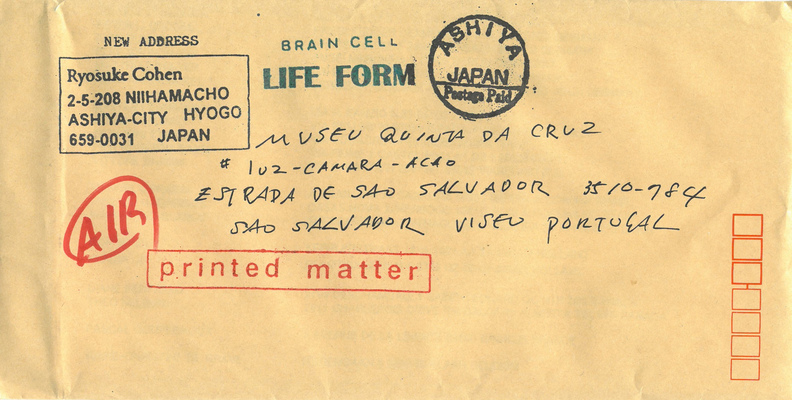 NEW ADDRESS
Ryosuke Cohen
2-5-208 NIIHAMACHO
ASHIYA-CITY HYOGO
659-0031 JAPAN
BRAIN CELL
LIFE FORM
ASHIYA
JAPAN
Postage Paid
MUSEU QUINTA DA CRUZ
# LUZ-CAMARA-ACAO
ESTRADA DE SAO SALVADOR 3510-784
SAO SALVADOR VISEU PORTUGAL
AIR
printed matter